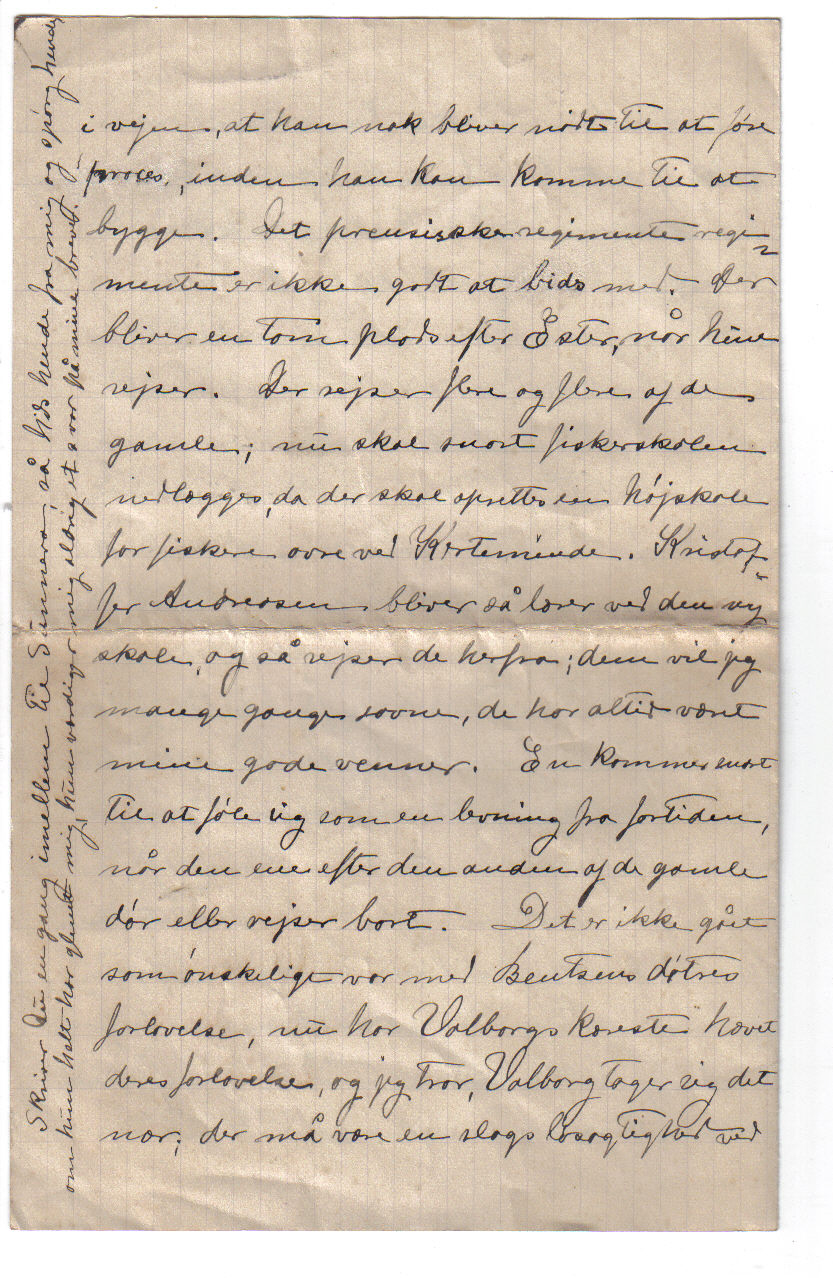 i vejen, at han nok bliver nødt til at føre
proces, inden han kan komme til at
bygge. Det preusisske regimente regi-
mente er ikke godt at bids med. Der
bliver en tom plads efter Ester, når hun
rejser. Der rejser flere og flere af de
gamle; nu skal snart fiskerskolen
nedlægges, da der skal oprettes en højskole
for fiskere ovre ved Kerteminde. Kristof-
fer Andreasen bliver så lærer ved den ny
skole, og så rejser de herfra; dem vil jeg
mange gange savne, de har altid været
mine gode venner. En kommer snart
til at føle sig som en levning fra fortiden,
når den ene efter den anden af de gamle
dør eller rejser bort. Det er ikke gået
som ønskeligt var med Bentsens døtres
forlovelse, nu har Valborgs kæreste hævet
deres forlovelse, og jeg tror, Valborg tager sig det
nær; der må være en slags løsagtighed ved
Skriver du en gang imellem til Gunnera, så hils hende fra mig og spørg hende,
om hun helt har glemt mig, hun værdiger mig aldrig et svar på mine breve.